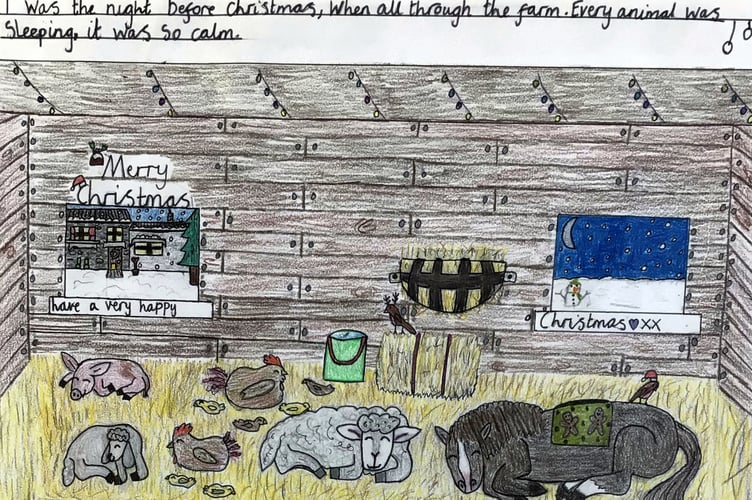 T was the night before Christmas, When all through the farm. Every animal was
Sleeping, it was so calm.
Merry
Christmas
have a very happy
Christmas♥xx